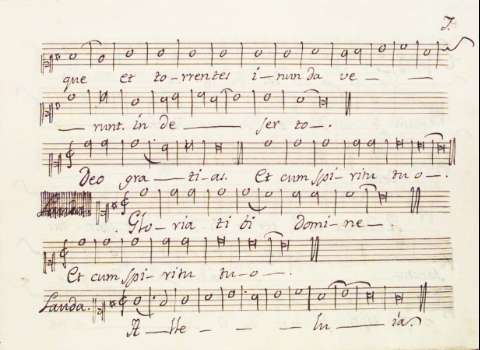 7.
que et to-rrentes i-nunda ve - -
- runt. in de - ser to -.
Deo gra - ti-as. Et cum spi-ritu tu-o-.
Glo-ria ti bi domi-ne-.
Et cum spi-ritu tu-o-.
Lauda.
A - lle - - - lu - ia.